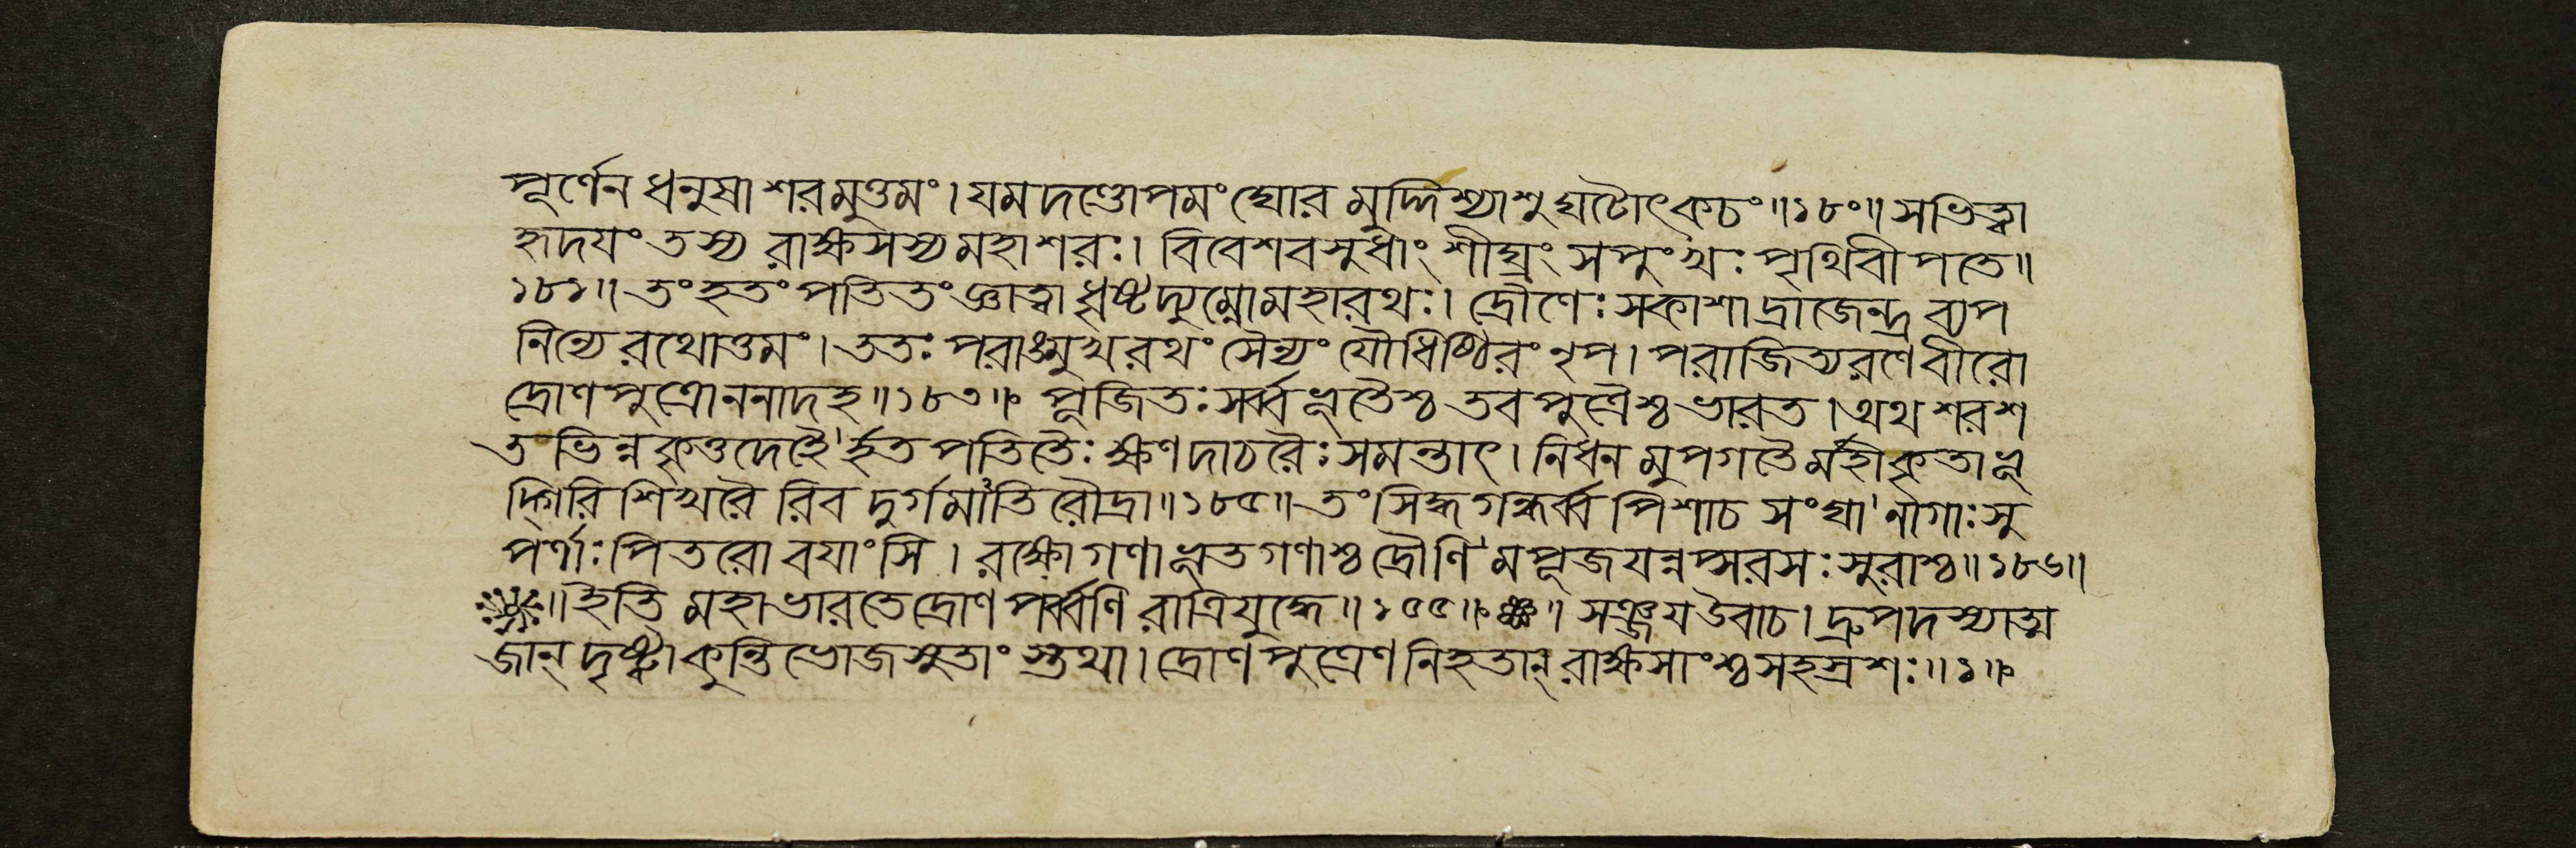 প্পূর্ণেন ধনুষা শরমুত্তমং। যমদণ্ডোপমং ঘোরমুদ্দিশ্যাশু ঘটোৎকচং॥১৮০॥ স ভিত্ত্বা
হৃদযং তস্য রাক্ষসস্য মহাশরঃ। বিবেশ বসুধাং শীঘ্রং সপুংখঃ পৃথিবীপতে॥
১৮১॥ তং হতং পতিতং জ্ঞাত্বা ধৃষ্টদ্যুম্নো মহারথঃ। দ্রৌণেঃ সকাশাদ্রাজেন্দ্র ব্যপ
নিন্যে রথোত্তমং। ততঃ পরাঙ্মুখরথং সৈন্যং যৌধিষ্ঠিরং নৃপ। পরাজিত্য রণে বীরো
দ্রোণপুত্রো ননাদ হ॥১৮৩॥ পূজিতঃ সর্ব্বভূতৈশ্চ তব পুত্রৈশ্চ ভারত। অথ শরশ
তভিন্নকৃত্তদেহৈর্হতপতিতৈঃ ক্ষণদাচরৈঃ সমন্তাৎ। নিধনমুপগতৈর্মহীকৃতাভূ
দ্গিরিশিখরৈরিব দুর্গমাতিরৌদ্রা॥১৮৫॥ তং সিদ্ধগন্ধর্ব্বপিশাচসংঘা নাগাঃ সু
পর্ণাঃ পিতরো বযাংসি। রক্ষোগণা ভূতগণাশ্চ দ্রৌণিমপূজযন্নপ্সরসঃ সুরাশ্চ॥১৮৬॥
॥ইতি মহাভারতে দ্রোণপর্ব্বণি রাত্রিযুদ্ধে॥১৫৫॥ সঞ্জয উবাচ। দ্রুপদস্যাত্ম
জান্ দৃষ্ট্বা কুন্তিভোজসুতাংস্তথা। দ্রোণপুত্রেণ নিহতান্ রাক্ষসাংশ্চ সহস্রশঃ॥১॥